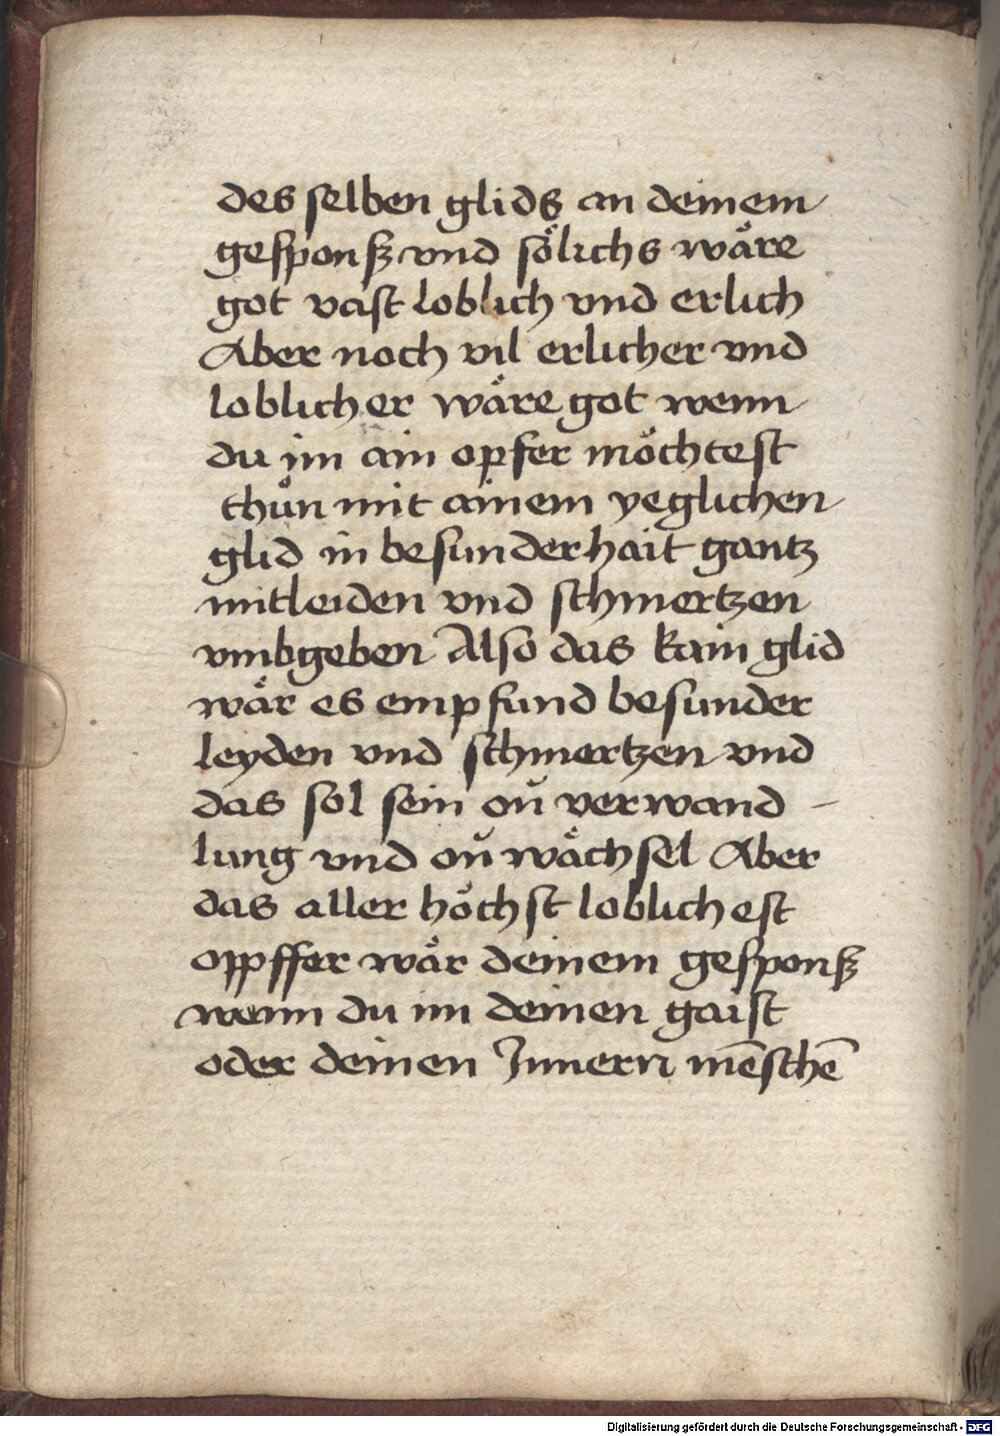 des selben glids an deinem
gesponß vnd sölichs wäre
got vast loblich vnd erlich
Aber noch vil erlicher vnd
loblicher wäre got wenn
du im ain opfer möchtest
thůn mit ainem yeglichen
glid in besunderhait gantz
mitleiden vnd schmertzen
vmbgeben Also das kain glid
wär es empfund besunder
leyden vnd schmertzen vnd
das sol sein on verwand –
lung vnd on wächsel Aber
das aller höchst loblichest
oppffer wär deinem gesponß
wenn du im deinen gaist
oder deinen Innern mēschē
Digitalisierung gefördert durch die Deutsche Forschungsgemeinschaft - DFG